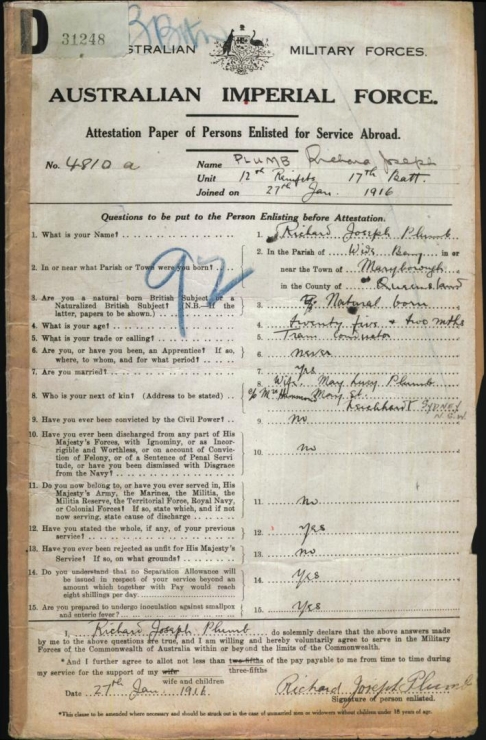 D
31248
AUSTRALIAN MILITARY FORCES.
AUSTRALIAN IMPERIAL FORCE.
Attestation Paper of Persons Enlisted for Service Abroad.
No. 4810 a Name PLUMB Richard Joseph
Unit 12th Reinfcts 17th Batt.
Joined on 27th Jan. 1916
Questions to be put to the Person Enlisting before Attestation.
1. What is your Name? 1. Richard Joseph Plumb
2. In or near what Parish or Town were you born? 2. In the Parish of Wide Bay in or
near the Town of Maryborough
in the County of Queensland
3. Are you a natural born British Subject or a
Naturalized British Subject? (N.B.—If the
latter, papers to be shown.) 3. Natural born
4. What is your age? 4. twenty five + two mths
5. What is your trade or calling? 5. Tram Conductor
6. Are you, or have you been, an Apprentice? If so,
where, to whom, and for what period? 6. never
7. Are you married? 7. Yes
8. Who is your next of kin? (Address to be stated) 8. Wife, Mary Lucy Plumb
c/o Mrs Mary St.
Leichhardt Sydney
N.S.W.
9. Have you ever been convicted by the Civil Power? 9. no
10. Have you ever been discharged from any part of His
Majesty's Forces, with Ignominy, or as Incor-
rigible and Worthless, or on account of Convic-
tion of Felony, or of a Sentence of Penal Servi-
tude, or have you been dismissed with Disgrace
from the Navy? 10. no
11. Do you now belong to, or have you ever served in, His
Majesty's Army, the Marines, the Militia, the
Militia Reserve, the Territorial Force, Royal Navy,
or Colonial Forces? If so, state which, and if not
now serving, state cause of discharge 11. no
12. Have you stated the whole, if any, of your previous
service? 12. yes
13. Have you ever been rejected as unfit for His Majesty's
Service? If so, on what grounds? 13. no
14. Do you understand that no Separation Allowance will
be issued in respect of your service beyond an
amount which together with Pay would reach
eight shillings per day 14. Yes
15. Are you prepared to undergo inoculation against smallpox
and enteric fever? 15. Yes
92
I, Richard Joseph Plumb do solemnly declare that the above answers made
by me to the above questions are true, and I am willing and hereby voluntarily agree to serve in the Military
Forces of the Commonwealth of Australia within or beyond the limits of the Commonwealth.
*And I further agree to allot not less than two-fifths of the pay payable to me from time to time during
three-fifths
my service for the support of my wife
wife and children
Date 27th Jan. 1916. Richard Joseph Plumb
Signature of person enlisted.
*This clause to be amended where necessary and should be struck out in the case of unmarried men or widowers without children under 18 years of age.